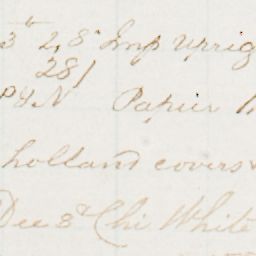 3" 2,8" Imp Uprig
281
P & N Papier
holland covers
Dec 8" Chi. White